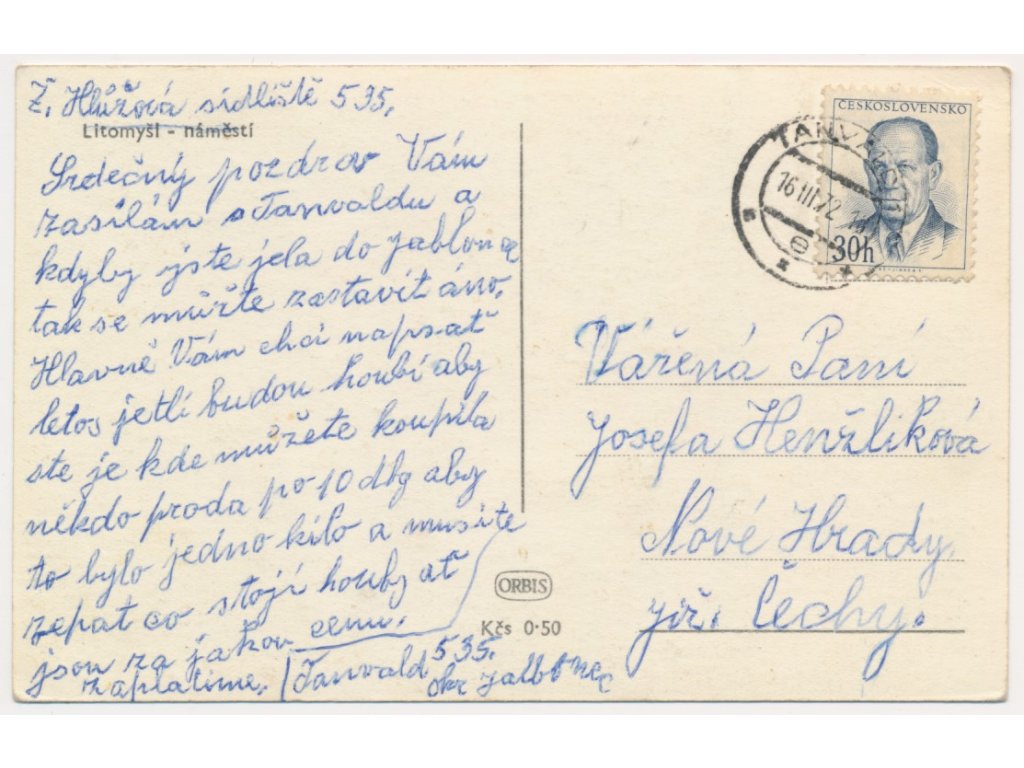 Ž. Hlůžová sídliště 535,
Litomyšl - náměstí
Srdečný pozdrav Vám
zasílám s Tanvaldu a
kdyby jste jela do Jablonce
tak se můžte zastavit áno.
Hlavně Vám chci napsat
letos jetli budou houbí aby
ste je kde můžete koupila
někdo proda po 10 dkg aby
to bylo jedno kilo a musite
zepat co stojí houby ať
jsou za jakou cenu.
zaplatime.
Tanvald 535.
okr Jablonec
ORBIS
Kčs 0·50
ČESKOSLOVENSKO
30h
TANVALD
16.III.72
Vářená Paní
Josefa Henžlíková
Nové Hrady
již. Čechy.